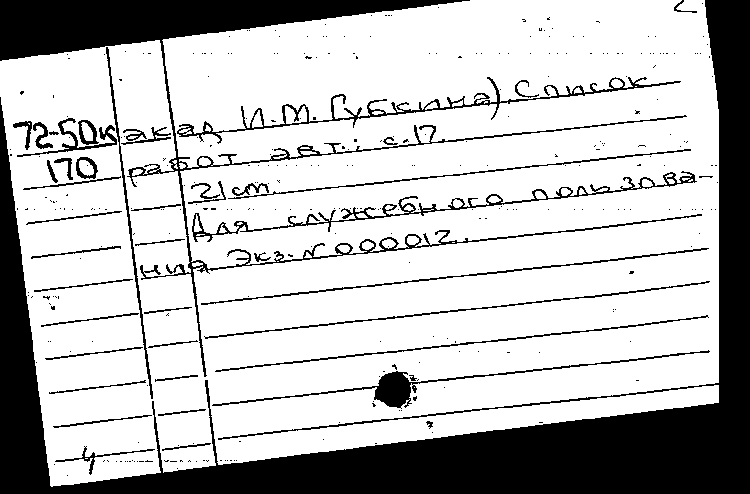 2
72-50к акад И.М. Губкина). Список
170 работ авт.: с.17.
21 cm.
Для служебного пользова-
ния Экз. N 000012.
4